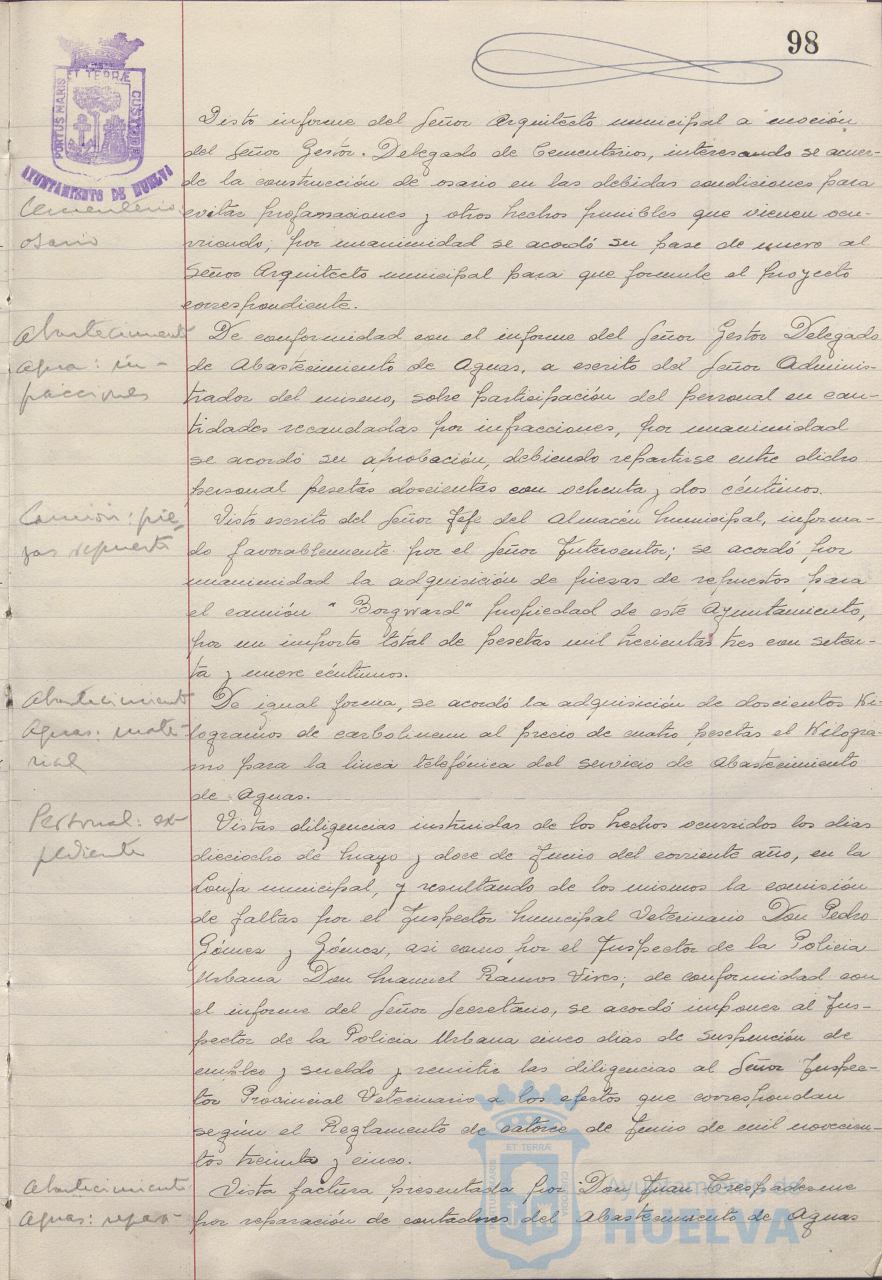 98
ET TERRÆ
PORTUS MARIS
CUSTODIA
AYUNTAMIENTO DE HUELVA
Visto informe del Señor Arquitecto municipal a moción
del Señor Gestor Delegado de Cementerios, interesando se acuer-
de la construcción de osario en las debidas condiciones para
Cementerio:
evitar profanaciones y otros hechos punibles que vienen ocu-
osario
rriendo; por unanimidad se acordó su pase de nuevo al
Señor Arquitecto municipal para que formule el proyecto
correspondiente.
Abastecimiento
De conformidad con el informe del Señor Gestor Delegado
agua: in-
de Abastecimiento de Aguas, a escrito del Señor Adminis-
fracciones
trador del mismo, sobre participación del personal en can-
tidades recaudadas por infracciones, por unanimidad
se acordó su aprobación, debiendo repartirse entre dicho
personal pesetas doscientas con ochenta y dos céntimos.
Camión: pie-
Visto escrito del Señor Jefe del Almacén Municipal, informa-
zas repuesto
do favorablemente por el Señor Interventor; se acordó por
unanimidad la adquisición de piesas de repuestos para
el camión "Borgward" propiedad de este Ayuntamiento,
por un importe total de pesetas mil trecientas tres con seten-
ta y nueve céntimos.
Abastecimiento
De igual forma, se acordó la adquisición de doscientos Ki-
Aguas: mate-
logramos de carbolineum al precio de cuatro pesetas el Kilogra-
rial
mo para la linea telefónica del servicio de Abastecimiento
de Aguas.
Personal: ex-
Vistas diligencias instruidas de los hechos ocurridos los dias
pediente
dieciocho de Mayo y doce de Junio del corriente año, en la
Lonja municipal, y resultando de los mismos la comisión
de faltas por el Inspector Municipal Veterinario Don Pedro
Gómes y Gómes, asi como por el Inspector de la Policia
Urbana Don Manuel Ramos Vives; de conformidad con
el informe del Señor Secretario, se acordó imponer al Ins-
pector de la Policia Urbana cinco dias de suspención de
empleo y sueldo y remitir las diligencias al Señor Inspec-
tor Provincial Veterinario a los efectos que correspondan
según el Reglamento de catorce de Junio de mil novecien-
tos treinta y cinco.
Abastecimiento
Vista factura presentada por Don Juan Trespaderne
Aguas: repar-
por reparación de contadores del Abastecimiento de Aguas
ET TERRÆ
Ayuntamiento de
HUELVA